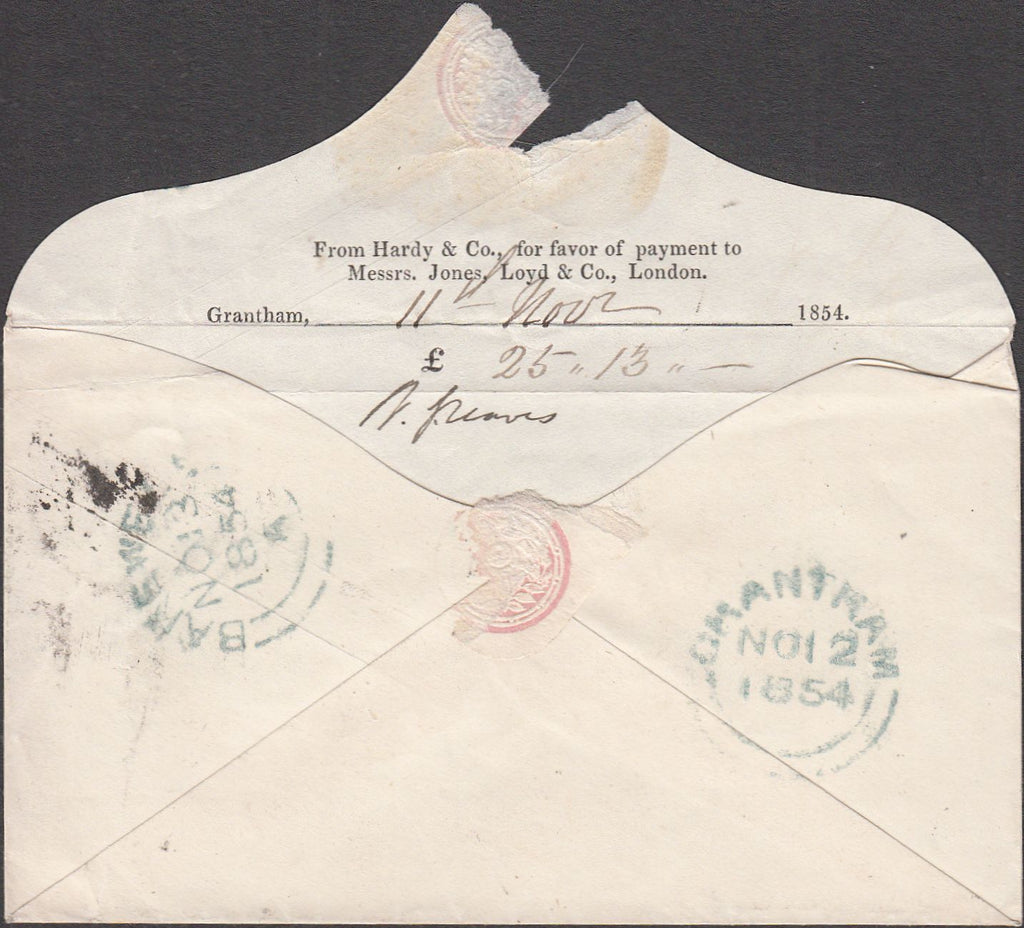 From Hardy & Co., for favor of payment to
Messrs. Jones, Loyd & Co., London.
Grantham, 11th Novr 1854.
£ 25 " 13 " —
GRANTHAM
NO 12
1854
NO 13
1854
A